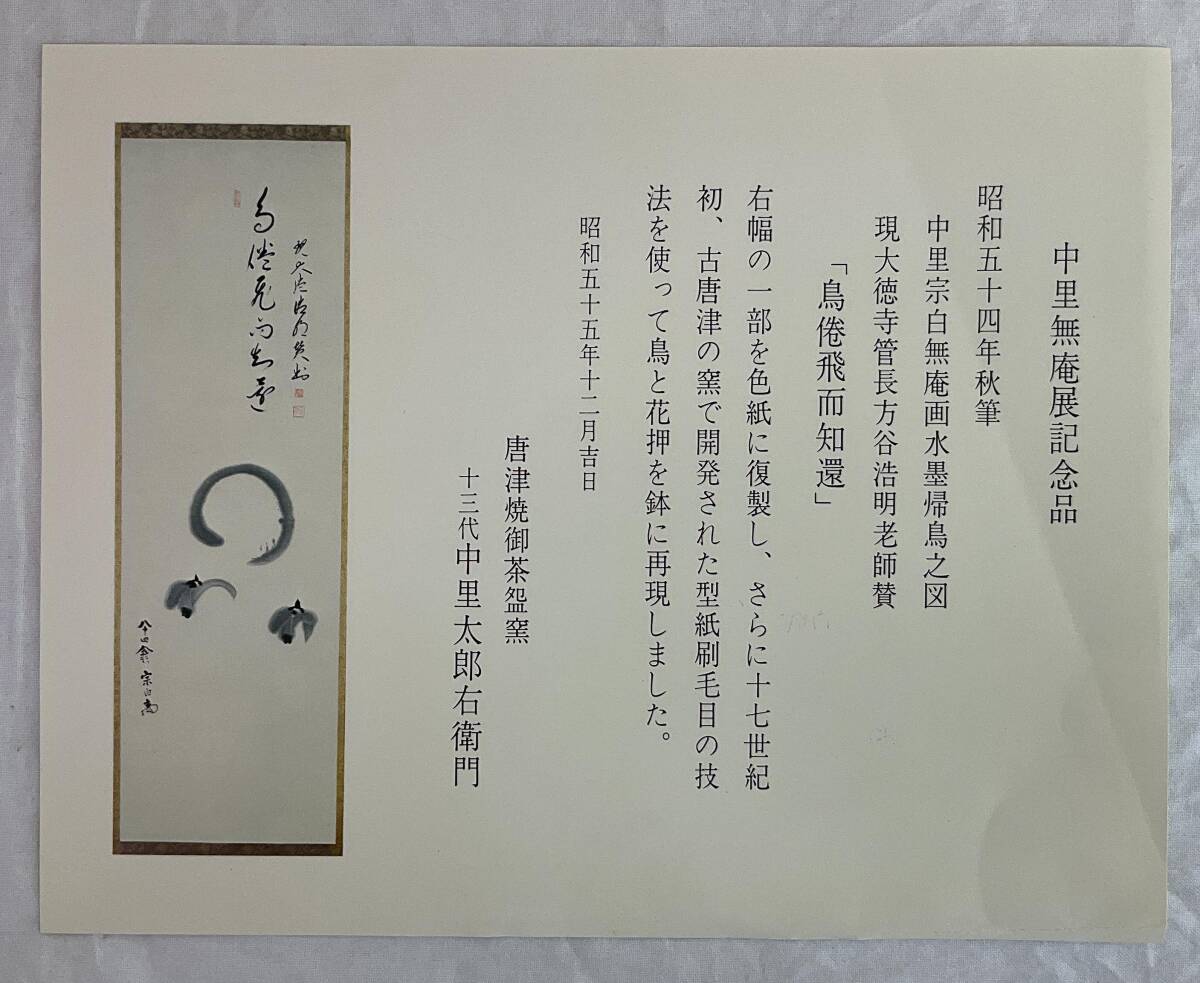 中里無庵展記念品
昭和五十四年秋筆
中里宗白無庵画水墨帰鳥之図
現大徳寺管長方谷浩明老師賛
「鳥倦飛而知還」
右幅の一部を色紙に復製し、さらに十七世紀
初、古唐津の窯で開発された型紙刷毛目の技
法を使って鳥と花押を鉢に再現しました。
昭和五十五年十二月吉日
唐津焼御茶盌窯
十三代中里太郎右衛門
鳥倦飛而知還
八十四翁 宗白